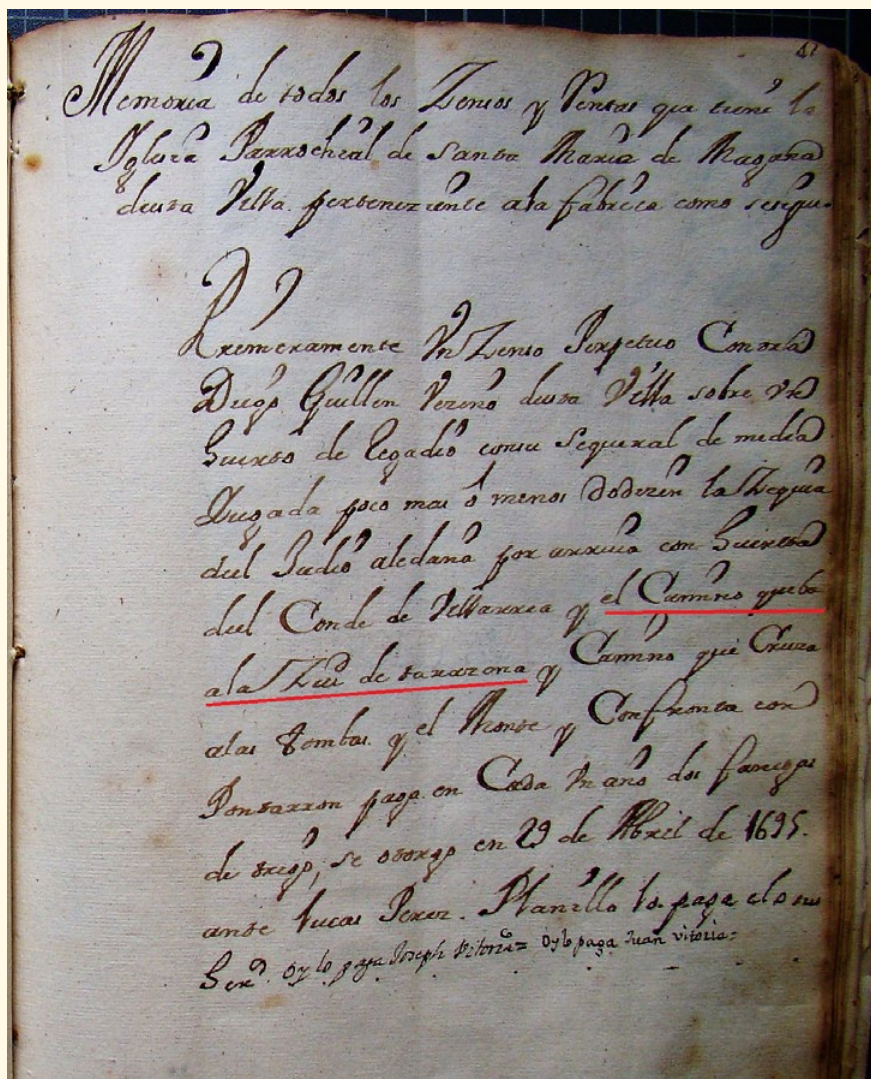 41
Memoria de todos los Zensos y Rentas que tiene la
Iglesia Parrochial de Santa Maria de Magaña
desta Villa perteneziente a la fabrica como sesigue
Primeramente Vn Zenso Perpetuo Contra
Diego Guillen Vezino desta Villa sobre Vn
huerto de Regadio consu sequeral de media
Yugada poco mas ô menos dodizen la Zequia
del Judio aledaña por arriua con huerta
del Conde de Villarrea y el Camino queba
a la Ziud de tarazona y Camino que Cruza
alas tombas y el Monte y Confronta con
Pontarron paga en Cada Vn año dos fanegas
de trigo, se otorgo en 29 de Abril de 1695.
ante Lucas Perez. Planillo lo paga
Oy lo paga Joseph Vitoria = Oy lo paga Juan vitoria =